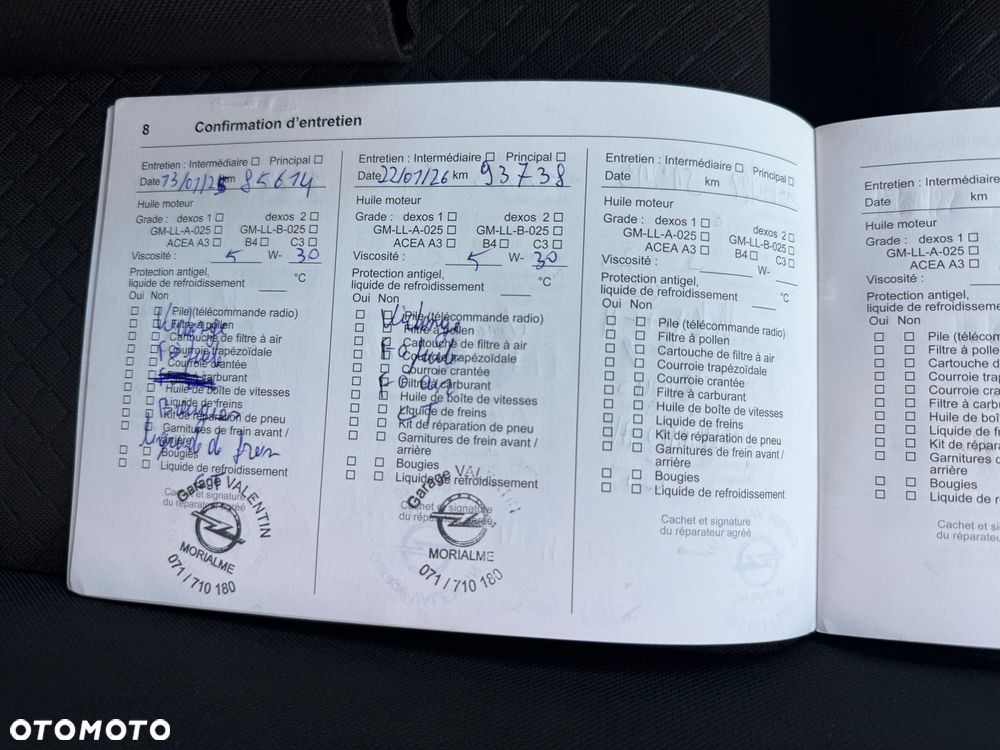 8 Confirmation d'entretien
Entretien : Intermédiaire Principal
Date 13/01/25 km 85614
Huile moteur
Grade : dexos 1 dexos 2
GM-LL-A-025 GM-LL-B-025
ACEA A3 B4 C3
Viscosité : 5 W- 30
Protection antigel, °C
liquide de refroidissement
Oui Non
Pile (télécommande radio)
Filtre à pollen
Cartouche de filtre à air
Courroie trapézoïdale
Courroie crantée
Filtre à carburant
Huile de boîte de vitesses
Liquide de freins
Kit de réparation de pneu
Garnitures de frein avant /
arrière
Bougies
Liquide de refroidissement
Vidange
Bougies
liquide de frein
Cachet et signature
du réparateur agréé
Garage VALENTIN
MORIALME
071 / 710 180
Entretien : Intermédiaire Principal
Date 22/01/26 km 93738
Huile moteur
Grade : dexos 1 dexos 2
GM-LL-A-025 GM-LL-B-025
ACEA A3 B4 C3
Viscosité : 5 W- 30
Protection antigel, °C
liquide de refroidissement
Oui Non
Pile (télécommande radio)
Filtre à pollen
Cartouche de filtre à air
Courroie trapézoïdale
Courroie crantée
Filtre à carburant
Huile de boîte de vitesses
Liquide de freins
Kit de réparation de pneu
Garnitures de frein avant /
arrière
Bougies
Liquide de refroidissement
Vidange
Cachet et signature
du réparateur agréé
Garage VALENTIN
MORIALME
071 / 710 180
Entretien : Intermédiaire Principal
Date km
Huile moteur
Grade : dexos 1 dexos 2
GM-LL-A-025 GM-LL-B-025
ACEA A3 B4 C3
Viscosité : W-
Protection antigel, °C
liquide de refroidissement
Oui Non
Pile (télécommande radio)
Filtre à pollen
Cartouche de filtre à air
Courroie trapézoïdale
Courroie crantée
Filtre à carburant
Huile de boîte de vitesses
Liquide de freins
Kit de réparation de pneu
Garnitures de frein avant /
arrière
Bougies
Liquide de refroidissement
Cachet et signature
du réparateur agréé
Entretien : Intermédiaire
Date km
Huile moteur
Grade : dexos 1
GM-LL-A-025
ACEA A3
Viscosité :
Protection antigel,
liquide de refroidissement
Oui Non
Pile (télécom
Filtre à polle
Cartouche d
Courroie tra
Courroie cra
Filtre à carb
Huile de boî
Liquide de f
Kit de répar
Garnitures d
arrière
Bougies
Liquide de r
Cachet et si
du réparateu
OTOMOTO